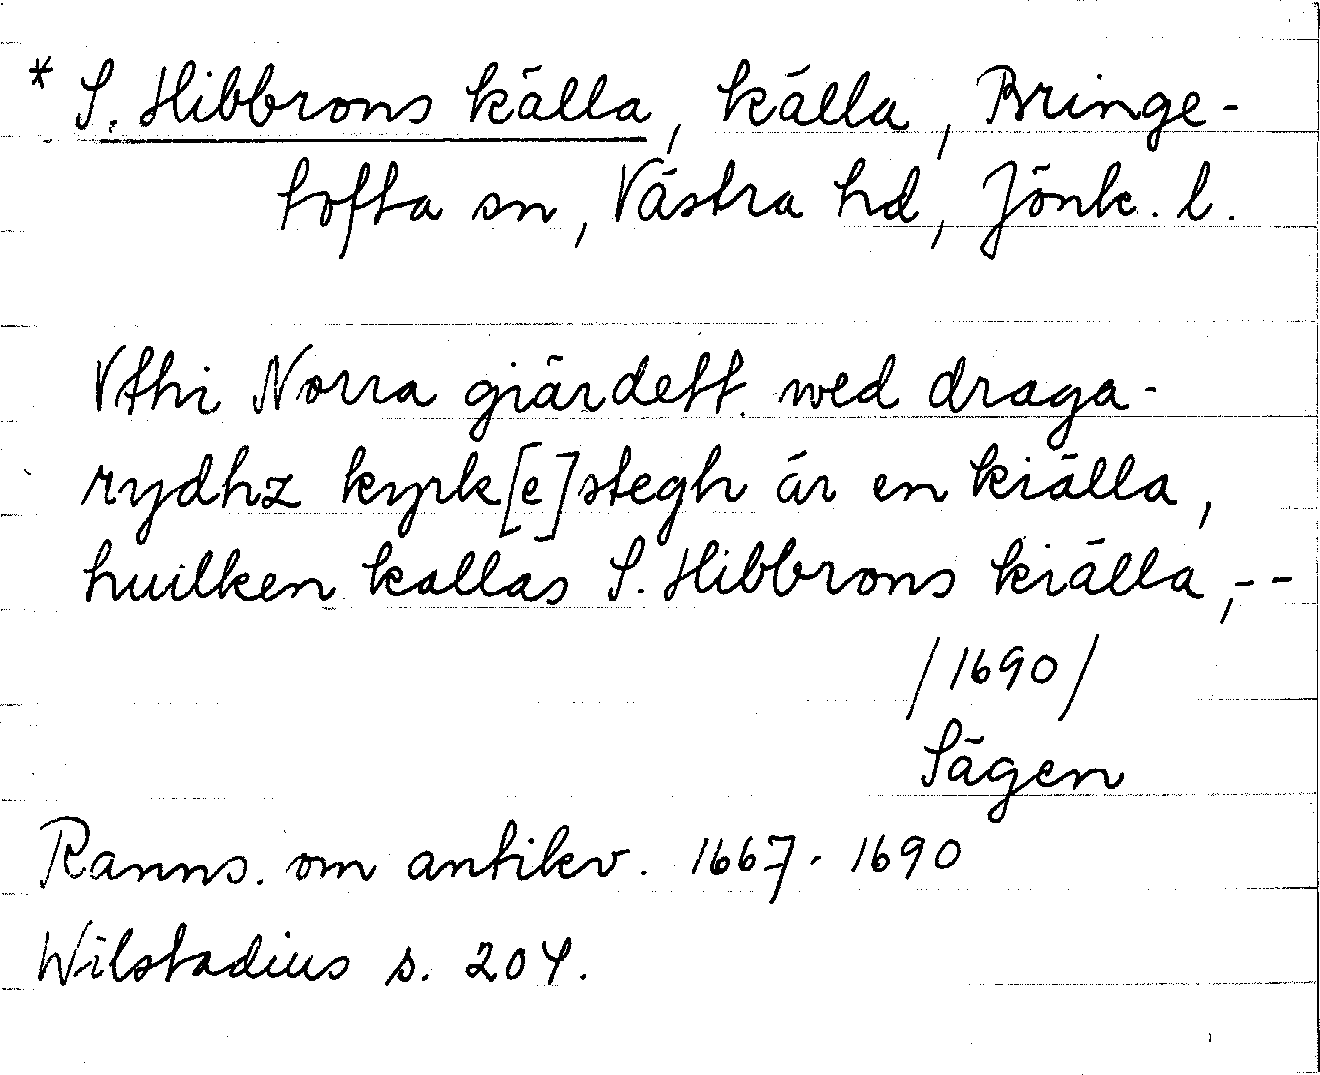 * S. Hibbrons källa, källa, Bringe-
tofta sn, Västra hd, Jönk. l.
Vthi Norra giärdett wed draga-
rydhz kyrk[e]stegh är en kiälla,
huilken kallas S. Hibbrons kiälla, - -
/1690/
Sägen
Ranns. om antikv. 1667-1690
Wilstadius s. 204.